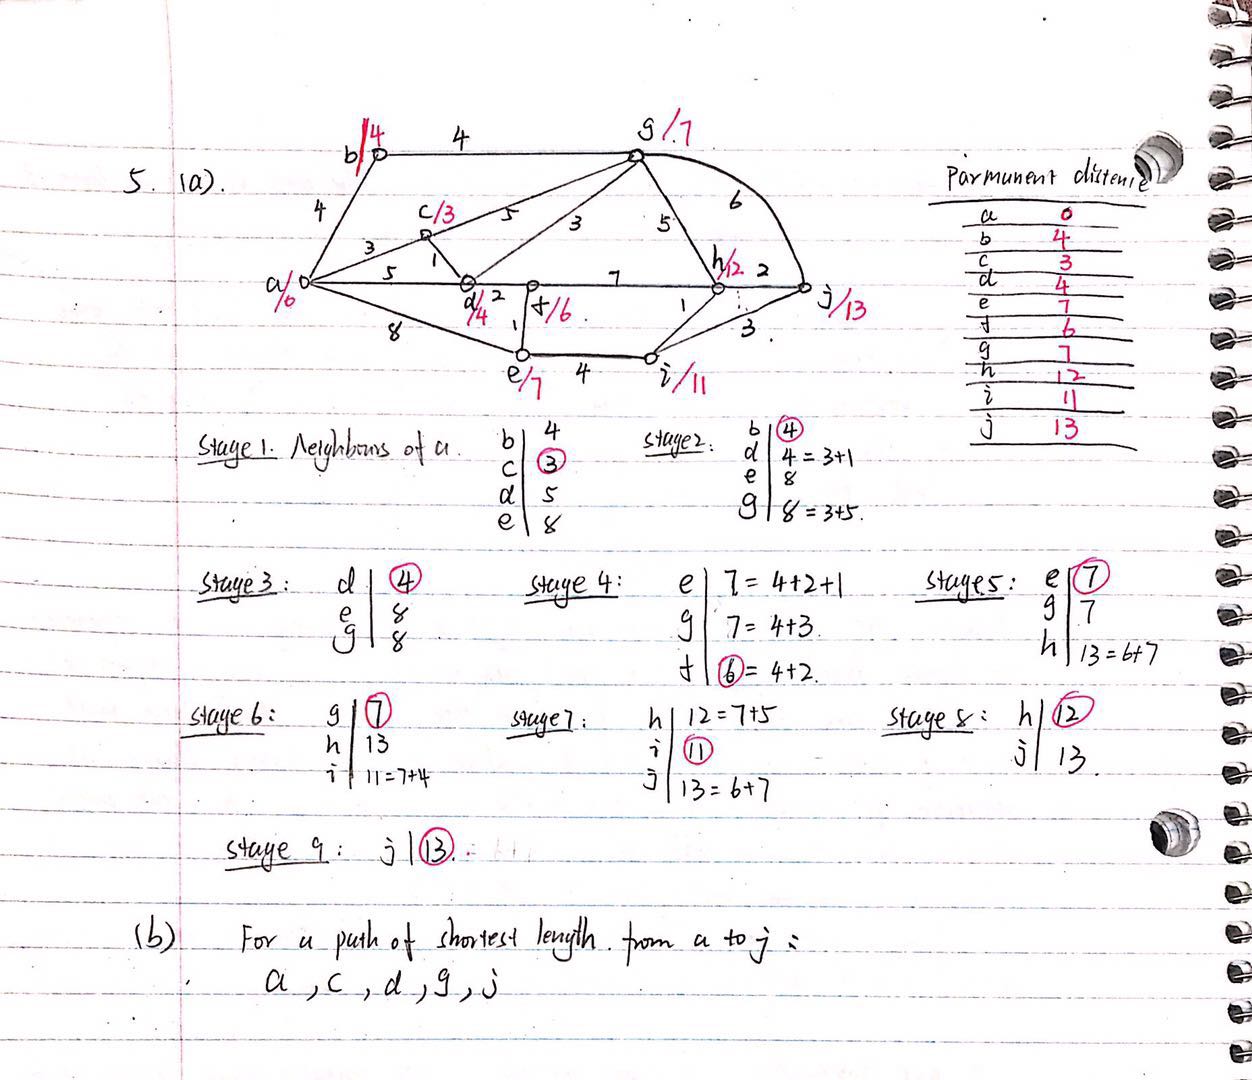 5. (a).
b/4
4
g/7
4
c/3
5
3
5
6
3
1
a/0
5
d/4
2
f/6
7
h/12
2
j/13
8
1
1
3
e/7
4
i/11
Parmunent distence
a 0
b 4
c 3
d 4
e 7
f 6
g 7
h 12
i 11
j 13
Stage 1. Neighbours of a.
b 4
c 3
d 5
e 8
stage 2:
b 4
d 4 = 3+1
e 8
g 8 = 3+5.
stage 3:
d 4
e 8
g 8
stage 4:
e 7 = 4+2+1
g 7 = 4+3
f 6 = 4+2.
stage 5:
e 7
g 7
h 13 = 6+7
stage 6:
g 7
h 13
i 11 = 7+4
stage 7:
h 12 = 7+5
i 11
j 13 = 6+7
stage 8:
h 12
j 13.
stage 9: j 13.
(b) For a path of shortest length from a to j:
a, c, d, g, j